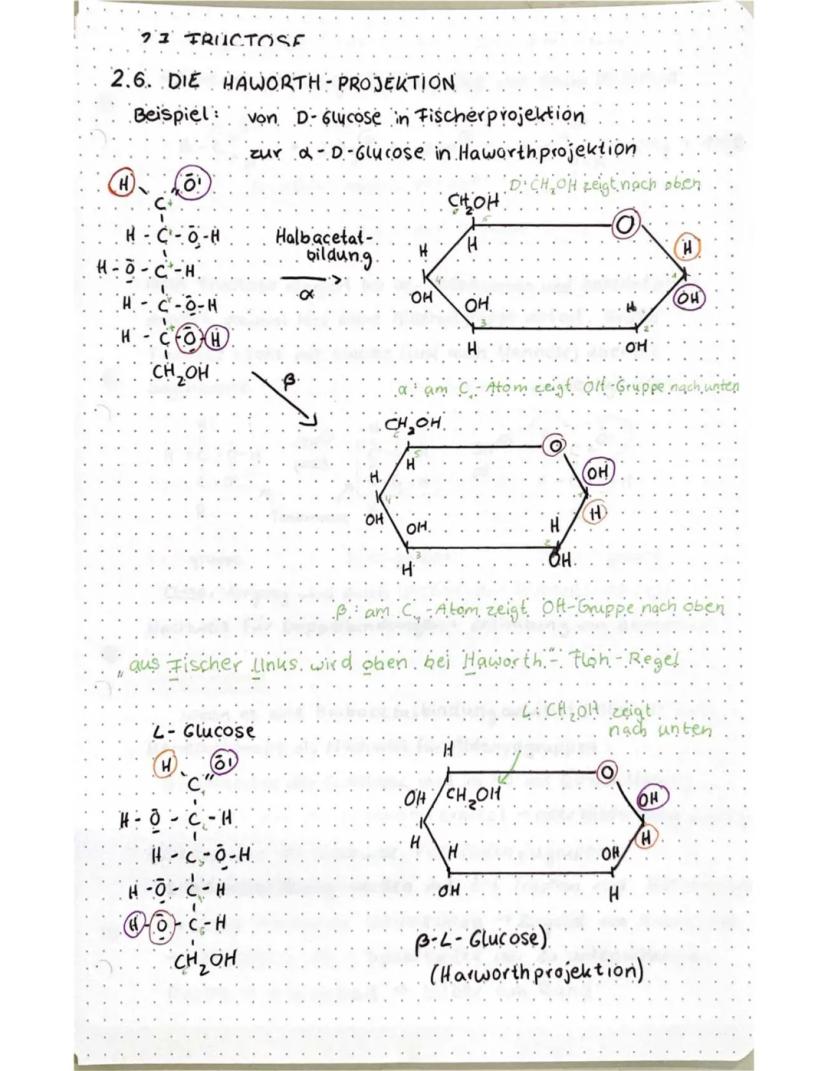 2.6. DIE HAWORTH-PROJEKTION
Beispiel: von D-Glucose in Fischerprojektion
zur α-D-Glucose in Haworthprojektion
D: CH2OH zeigt nach oben
H O
C
H - C - O - H
H - O - C - H
H - C - O - H
H - C - O - H
CH2OH
Halbacetal-
bildung
α
CH2OH
5
O
H
H
H
4
1
OH
OH
OH
H
3
2
H
OH
β
α: am C1-Atom zeigt OH-Gruppe nach unten
CH2OH
O
H
OH
H
OH
H
OH
H
3
2
H
OH
β: am C1-Atom zeigt OH-Gruppe nach oben
"aus Fischer links wird oben bei Haworth" - FLOH-Regel
L: CH2OH zeigt
nach unten
L-Glucose
H O
C
H - O - C - H
H - C - O - H
H - O - C - H
H - O - C - H
CH2OH
H
O
OH
CH2OH
OH
H
H
H
OH
OH
H
β-L-Glucose)
(Harworthprojektion)